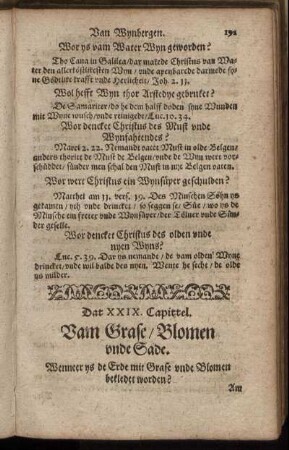 Van Wynbergen. 191
Wor ys vam Water Wyn geworden?
Tho Cana in Galilea/ dar makede Christus van Wa-
ter den allerköstlikesten Wyn / vnde apenbarede darmede sy-
ne Gödtlike krafft vnde Herlicheit/ Joh. 2. 11.
Wol hefft Wyn thor Arstedye gebruket?
De Samariter/ do he dem halff doden syne Wunden
mit Wyne wusch/ vnde reinigede/ Luc. 10. 34.
Wor dencket Christus des Must vnde
Wynfahtendes?
Marci 2. 22. Nemandt vatet Must in olde Belgen/
anders thoritt de Must de Belgen/ vnde de Wyn wert vor-
schüddet/ sünder men schal den Must in nye Belgen vaten.
Wor wert Christus ein Wynsüper geschulden?
Matthei am 11. vers. 19. Des Minschen Söhn ys
gekamen / ydt vnde drincket/ so seggen se/ Süt/ wo ys de
de Minsche ein freter vnde Wynsüper/ der Tölner vnde Sün-
der geselle.
Wor dencket Christus des olden vnde
nyen Wyns?
Luc. 5. 39. Dar ys nemandt/ de vam olden Wyne
drincket/ vnde wil balde den nyen. Wente he secht/ de olde
ys milder.
Dat XXIX. Capittel.
Vam Grase / Blomen
vnde Sade.
Wenneer ys de Erde mit Grase vnde Blomen
bekledet worden?
Am